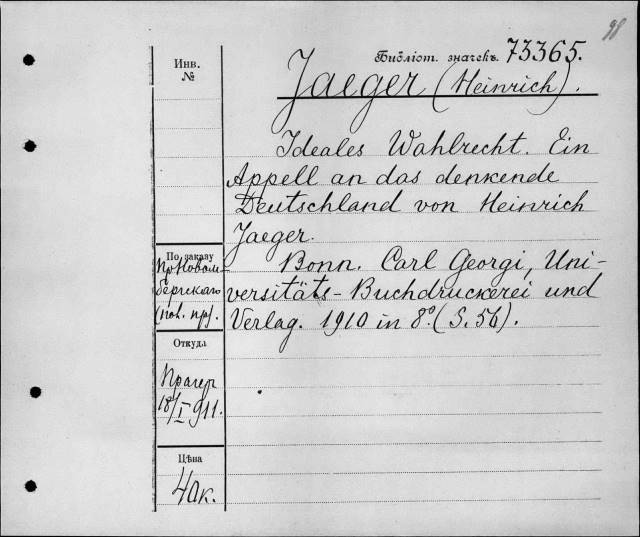 98
Библіот. значекъ. 73365.
Инв.
№
Jaeger (Heinrich).
Ideales Wahlrecht. Ein
Appell an das denkende
Deutschland von Heinrich
Jaeger.
Bonn. Carl Georgi, Uni-
versitäts-Buchdruckerei und
Verlag. 1910 in 8º. (S. 56).
По заказу
Пр. Новом-
бергскаго
Откуда
Прагер
18/I 911.
Цѣна
40 к.